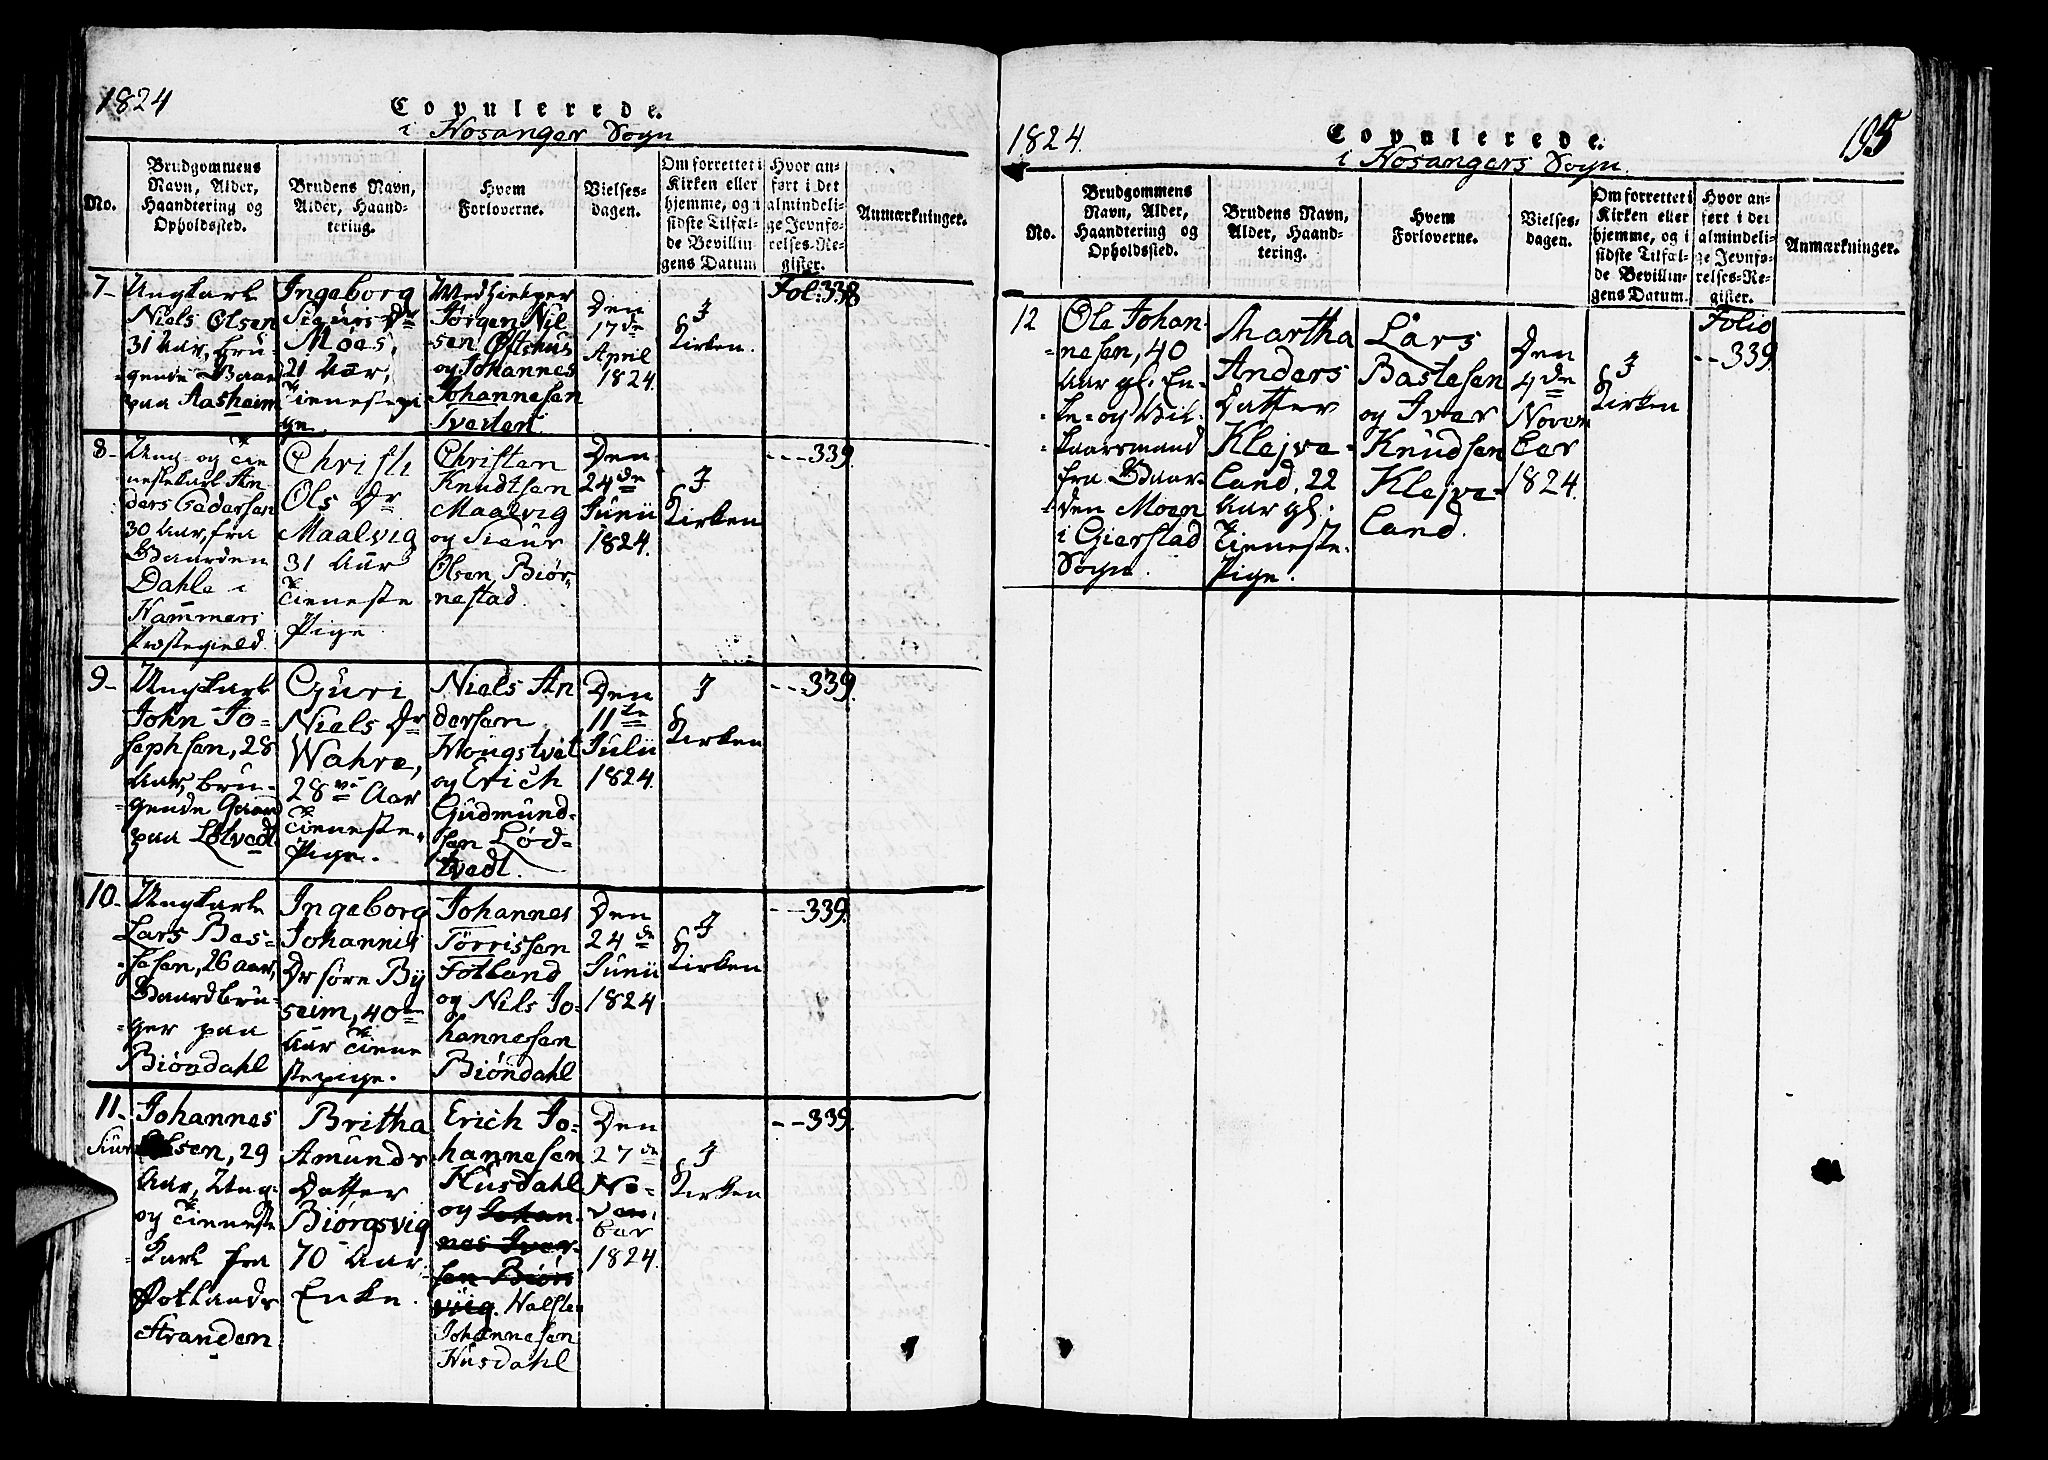 1824
Copulerede.
i Hosanger Sogn
No.
Brudgommens
Navn, Alder,
Haandtering og
Opholdssted.
Brudens Navn,
Alder, Haand-
tering.
Hvem
Forloverne.
Vielses-
dagen.
Om forrettet i
Kirken eller
hjemme, og i
sidste Tilfæl-
de Bevillin-
gens Datum
Hvor an-
ført i det
almindeli-
ge Jevnfø-
relses-Re-
gister.
Anmærkninger.
7-
Ungkarl
Niels Olsen
31 Aar, bru-
gende Gaard
paa Aasheim
Ingeborg
Siurs Dr
Moes,
21 Aar,
Tienestepi
ge.
Medhielper
Jørgen Nil
sen Oftshus
og Johannes
Johannesen
Tveiten
Den
17de
April
1824.
I
Kirken.
Fol: 338
8-
Ung- og Tie
nestekarl An-
ders Pedersen
30 Aar, fra
Gaarden
Dahle i
Hammers
Præstegield.
Christi
Ols Dr
Maalvig
31 Aar
Tieneste
Pige
Christen
Knudtsen
Maalvig
og Siur
Olsen Biør-
nestad.
Den
24de
Junii
1824.
I
Kirken
---339.
9-
Ungkarl
John Jo-
sephsen, 28
Aar, bru-
gende Gaard
paa Lotvedt
Guri
Niels Dr
Wahre,
28 Aar
Tieneste-
Pige.
Niels An
dersen
Mongstvit
og Erich
Gudmund-
sen Lød-
tvedt.
Den
11te
Julii
1824.
I
Kirken
---339.
10-
Ungkarl
Lars Bas-
tesen, 26 aar,
Gaardbru-
ger paa
Biøndahl
Ingeborg
Johannis
Dr søre By
seim, 40
Aar Tiene
stepige.
Johannes
Tørrissen
Fotland
og Nils Jo-
hannesen
Biøndahl
Den
24de
Junii
1824
I
Kirken
---339.
11-
Johannes
Siur sen, 29
Aar, Ung-
og Tieneste
Karl fra
Potlands
Stranden
Britha
Amunds
Datter
Biørgsvig
70 Aar
Enke.
Erich Jo-
hannesen
Husdahl
og Johan-
nes Iver-
sen Biørs
viig. Halsten
Johannesen
Husdahl
Den
27de
No-
vem,
ber
1824.
I
Kirken
---339.
1824.
Copulerede.
i Hosangers Sogn.
195
No.
Brudgommens
Navn, Alder,
Haandtering og
Opholdssted.
Brudens Navn,
Alder, Haand-
tering.
Hvem
Forloverne.
Vielses-
dagen.
Om forrettet i
Kirken eller
hjemme, og i
sidste Tilfæl-
de Bevillin-
gens Datum.
Hvor an-
ført i det
almindeli-
ge Jevnfø-
relses-Re-
gister.
Anmærkninger.
12
Ole Johan-
nesen, 40
Aar gl. En-
ke- og Vil-
kaarsmand
fra Gaar-
den Moen
i Gierstad
Sogn.
Martha
Anders
Datter
Klejve-
land, 22
Aar gl.
Tieneste-
Pige.
Lars
Bastesen
og Iver
Knudsen
Klejve-
land.
Den
4de
Novem
ber
1824.
I
Kirken
Folio
--339.